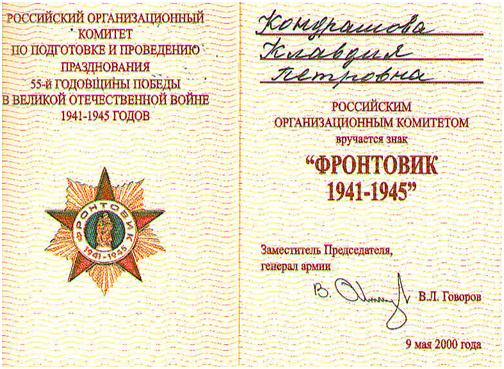 РОССИЙСКИЙ ОРГАНИЗАЦИОННЫЙ
КОМИТЕТ
ПО ПОДГОТОВКЕ И ПРОВЕДЕНИЮ
ПРАЗДНОВАНИЯ
55-й ГОДОВЩИНЫ ПОБЕДЫ
В ВЕЛИКОЙ ОТЕЧЕСТВЕННОЙ ВОЙНЕ
1941-1945 ГОДОВ
ФРОНТОВИК
1941-1945
Кондрашова
Клавдия
Петровна
РОССИЙСКИМ
ОРГАНИЗАЦИОННЫМ КОМИТЕТОМ
вручается знак
“ФРОНТОВИК
1941-1945”
Заместитель Председателя,
генерал армии
В.Л. Говоров
9 мая 2000 года